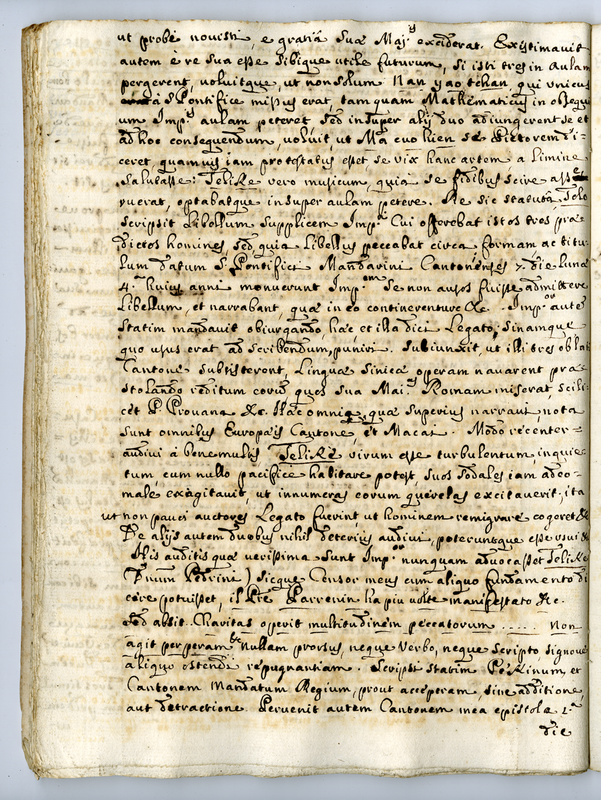 ut probè novisti, e gratiâ Suæ Maj.s exciderat. Existimavit
autem è re sua esse sibique utile futurum, si isti tres in Aulam
pergerent, voluitque, ut non solum Nan yao tchan, qui unicus
à S. Pontifice missus erat, tamquam Mathematicus in obsequi
um Imp.s aulam peteret sed insuper alij duo adiungerentur et
ad hoc consequendum, voluit, ut Ma cuo hien se Pictorem di-
ceret quamvis iam protestatus esset se vix hanc artem a limine
salutasse: Telike vero musicum, quia se fidibus scire
optabatque insuper aulam petere. Re sic statuta, Solo
scripsit Libellum supplicem Imp.i Cui offerebat istos tres præ-
dictos homines sed quia Libellus peccabat circa formam ac titu-
lum datum S. Pontifici Mandarini Cantonenses 7. die Lunæ
4. huius anni monuerunt Imp.em Se non ausos fuisse admittere
Libellum, et narrabant, quæ in eo continerentur &c. Imp.or autē
statim mandavit obiurgando, hæc et illa dici Legato; Sinamque
quo usus erat ad scribendum, puniri. Subiunxit, ut illi tres oblati
Cantone subsisterent, Linguæ Sinicæ operam navarent præ-
stolando reditum eorum quos Sua Mai.s Romam miserat, scili
cet P. Provana &c. Hæc omnia, quæ superius narravi nota
sunt omnibus Europæis Cantone, et Macai. Modo recenter
audivi à benemultis Telike virum esse turbulentum, inquie-
tum, cum nullo pacifice habitare potest, suos sodales iam adeo-
male exagitavit, ut innumeras eorum querelas excitaverit, ita
ut non pauci auctores Legato fuerint, ut hominem remigrare cogeret &c
De alijs autem duobus nihil deterius audivi, poteruntque esse usui &c
His auditis quæ verissima sunt Imp.or nunquam advocasset Telike
(Dnum Pedrini) sicque Censor meus cum aliquo fundamento di
cere potuisset, il Pre Parrenin ha piu volte manifestato &c.
Sed absit. Charitas operit multitudinem peccatorum ..... Non
agit perperam. Nullam prorsus, neque Verbo, neque scripto signove
aliquo ostendi repugnantiam. Scripsi statim Pekinum, et
Cantonem Mandatum Regium, prout acceperam, sine additione,
aut detractione. Pervenit autem Cantonem mea epistola 1.a
die